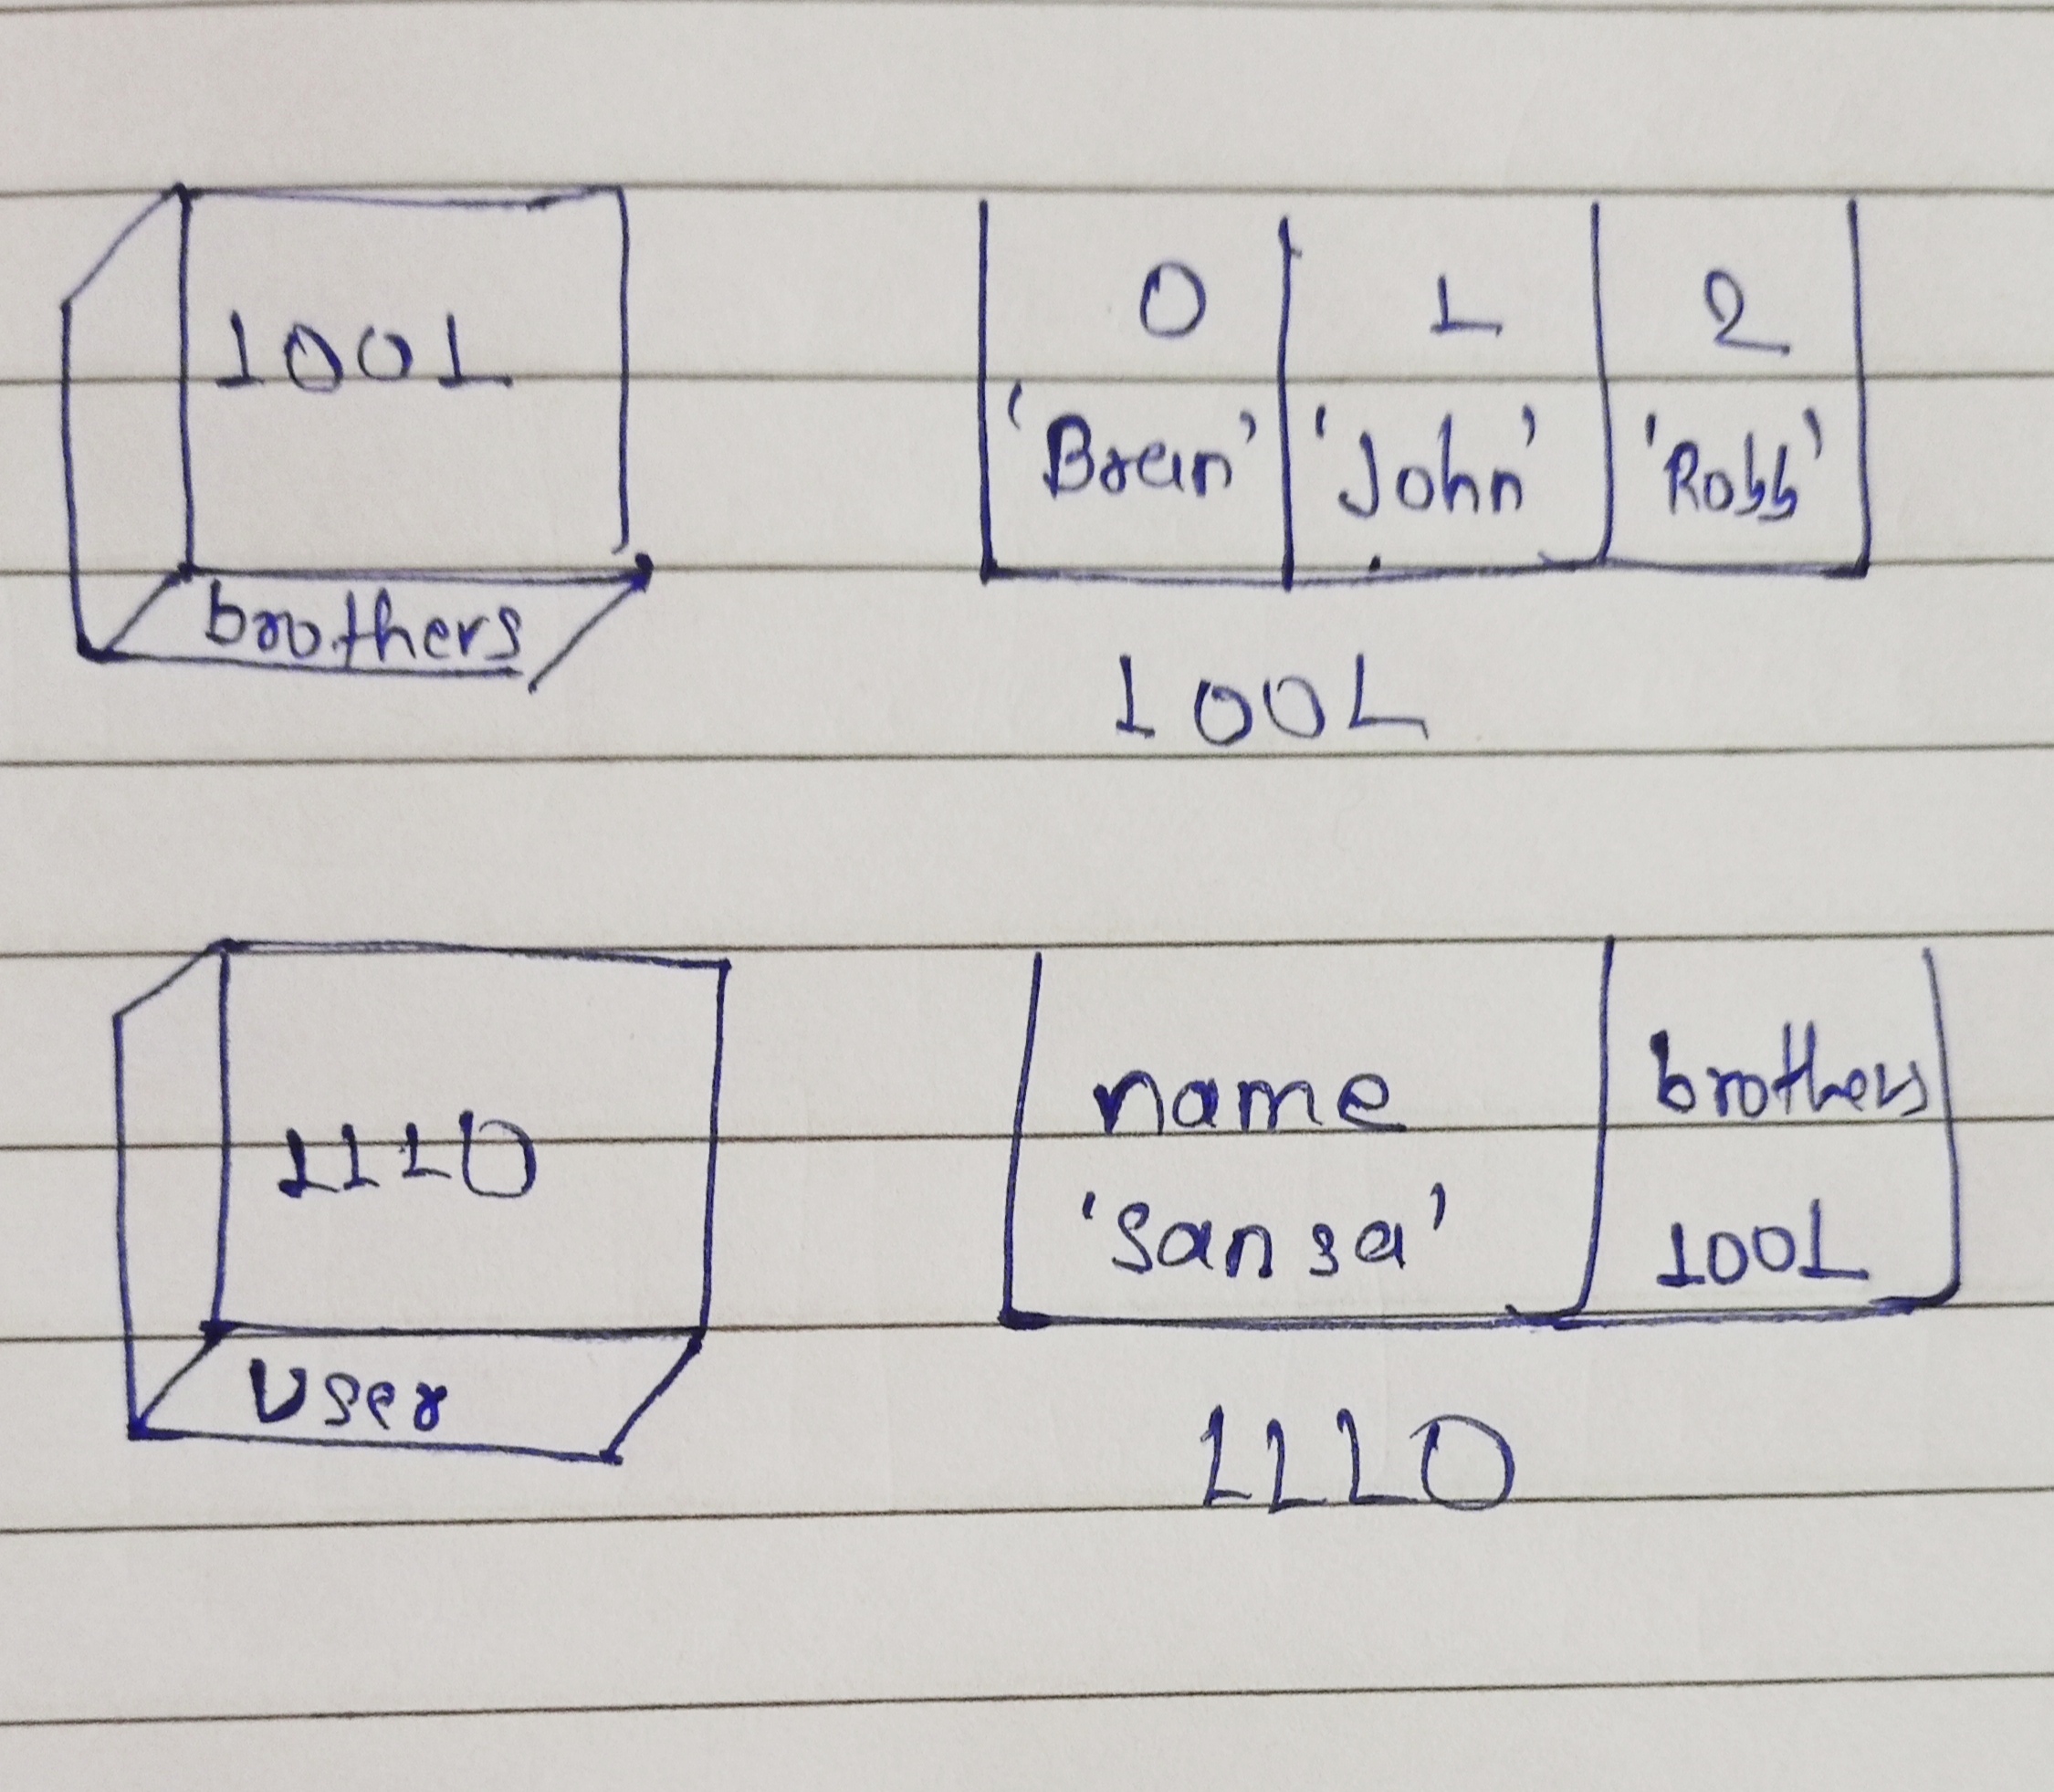 1001
brothers
0 1 2
'Bran' 'John' 'Robb'
1001
1110
user
name brothers
'sansa' 1001
1110